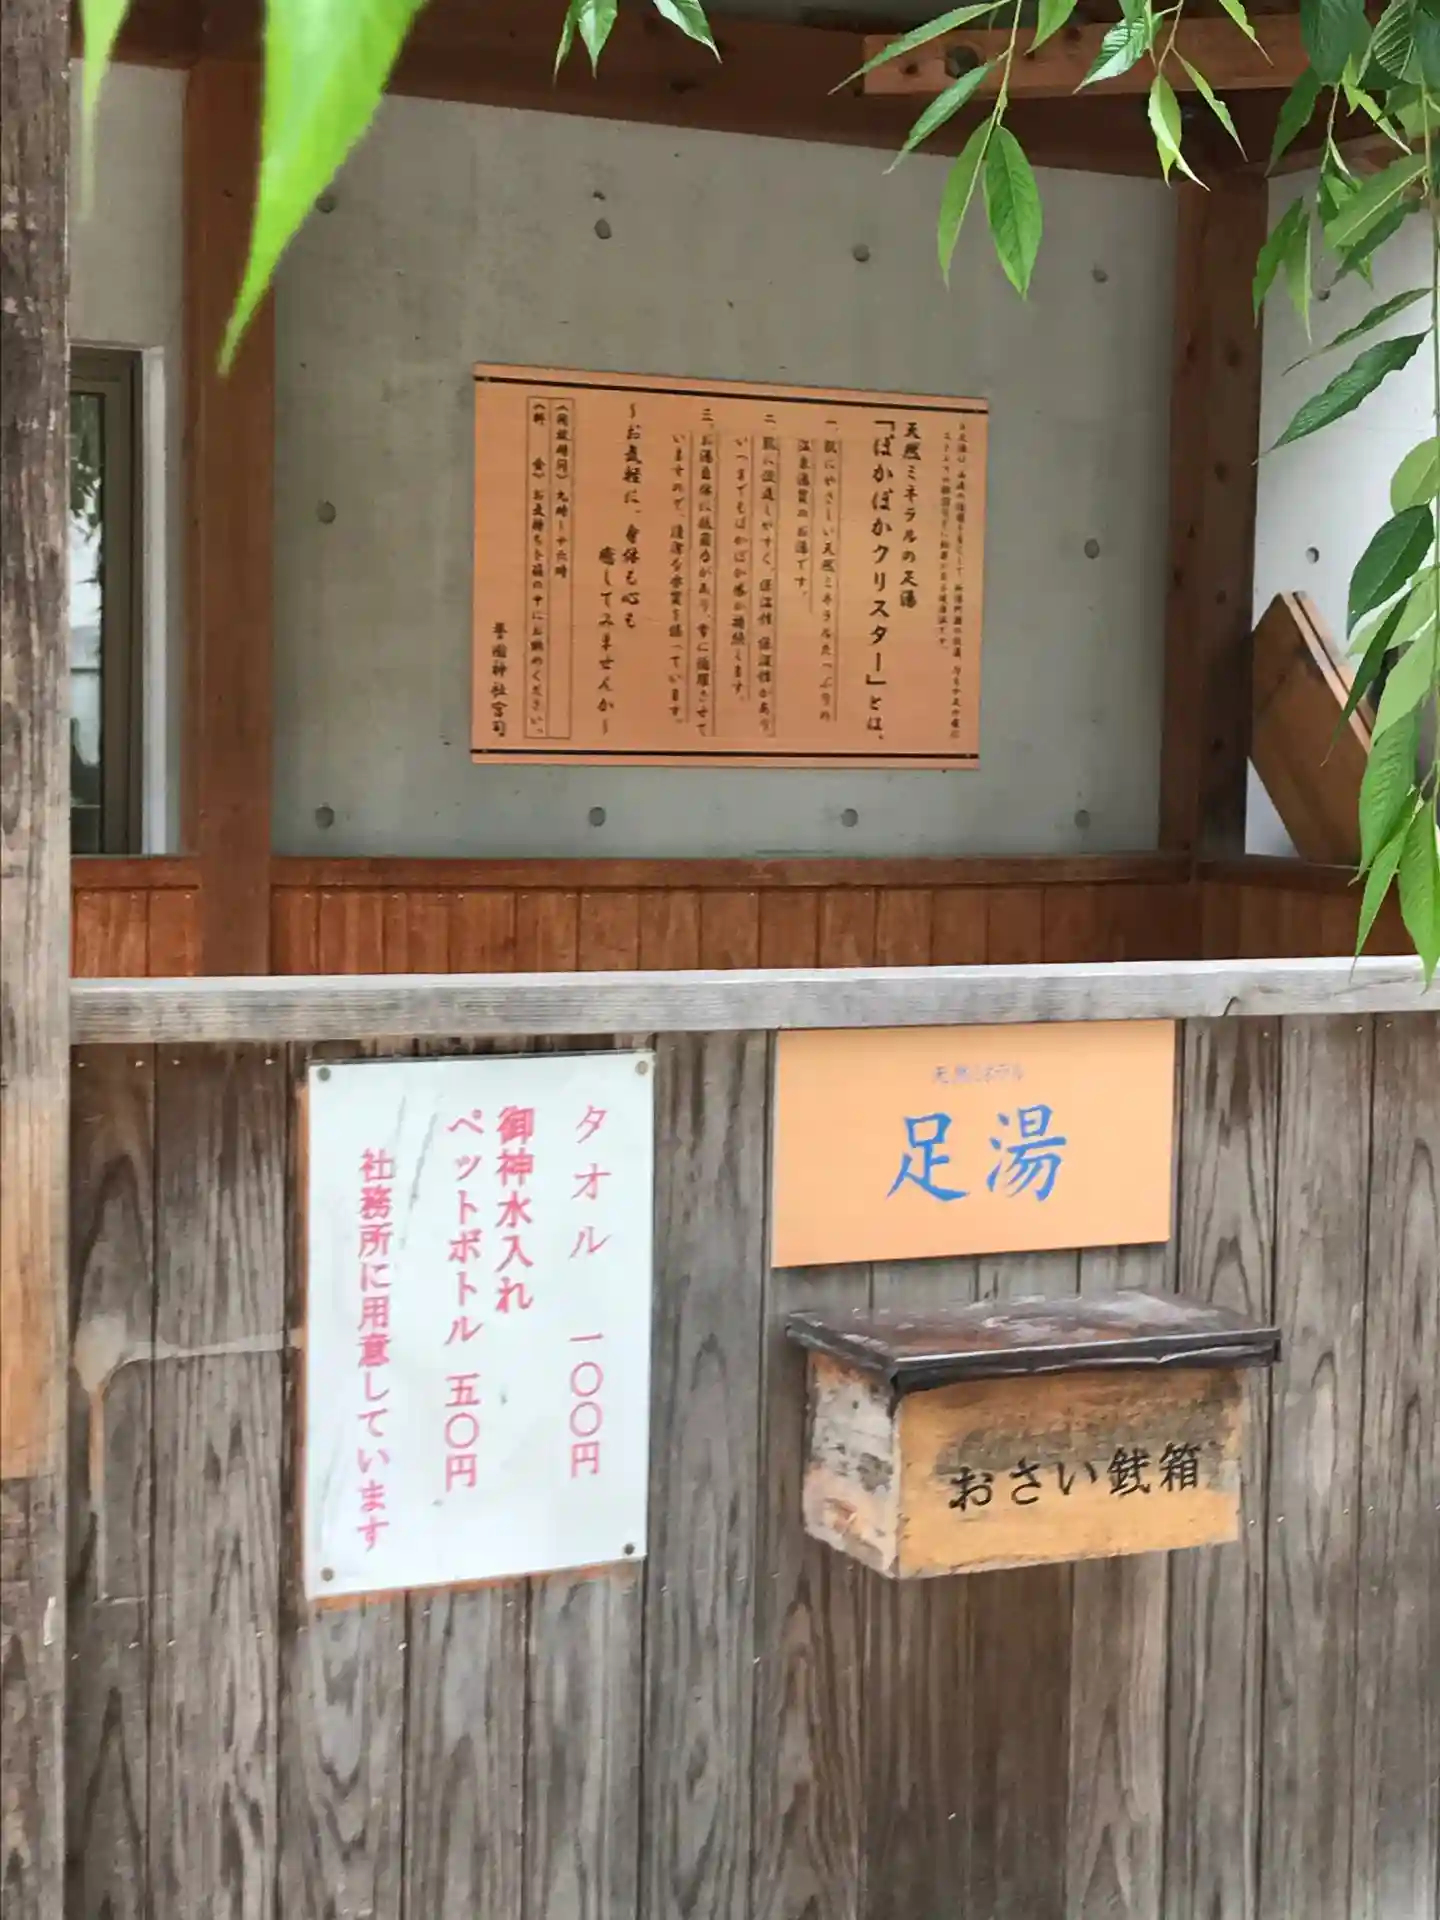 天然ミネラルの足湯
「ぽかぽかクリスター」とは、
一、肌にやさしい天然ミネラルたっぷりの
温泉濃質のお湯です。
二、肌に浸透しやすく、保温性、保湿性があり
いつまでもぽかぽか感が持続します。
三、お湯自体に殺菌力があり、常に循環させて
いますので、清潔な水質を保っています。
～お気軽に、身体も心も
癒してみませんか～
(開放時間)九時～十六時
(料 金)お気持ちを箱の中にお納めください。
神社宮司
天然ミネラル
足湯
タオル 一〇〇円
御神水入れ
ペットボトル 五〇円
社務所に用意しています
おさい銭箱